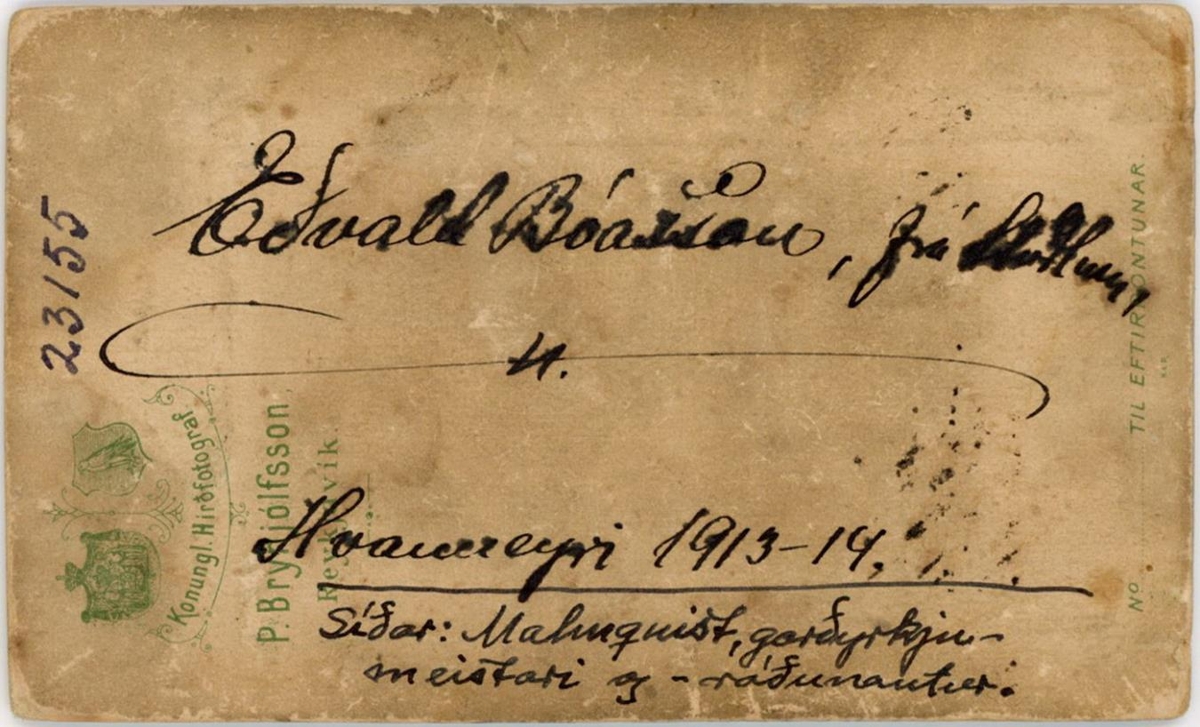 Eðvald Bóasson, frá
4.
Hvanneyri 1913-14.
Síðar: Malmquist, garðyrkju-
meistari og -ráðunautur.
23155
Konungl. Hirðfotograf
P. Brynjólfsson
Reykjavík.
No TIL EFTIRPÖNTUNAR.